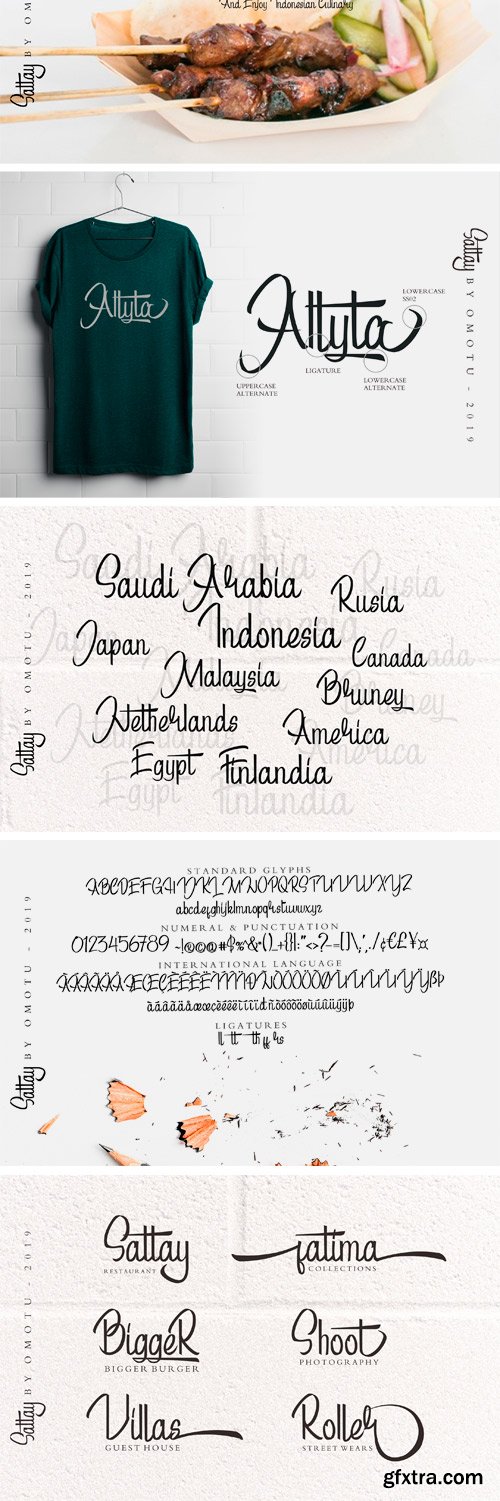 "And Enjoy" Indonesian Culinary
Sattay BY OMOTU
Allyta
Allyta
LOWERCASE
SS02
UPPERCASE
ALTERNATE
LIGATURE
LOWERCASE
ALTERNATE
Sattay BY OMOTU - 2019
Saudi Arabia
Rusia
Japan
Indonesia
Canada
Malaysia
Bruney
Netherlands
America
Egypt
Finlandia
Sattay BY OMOTU - 2019
STANDARD GLYPHS
ABCDEFGHIJKLMNOPQRSTUVWXYZ
abcdefghijklmnopqrstuvwxyz
NUMERAL & PUNCTUATION
0123456789
INTERNATIONAL LANGUAGE
LIGATURES
Sattay BY OMOTU - 2019
Sattay
RESTAURANT
fatima
COLLECTIONS
BiggeR
BIGGER BURGER
Shoot
PHOTOGRAPHY
Villas
GUEST HOUSE
Roller
STREET WEARS
Sattay BY OMOTU - 2019
gfxtra.com